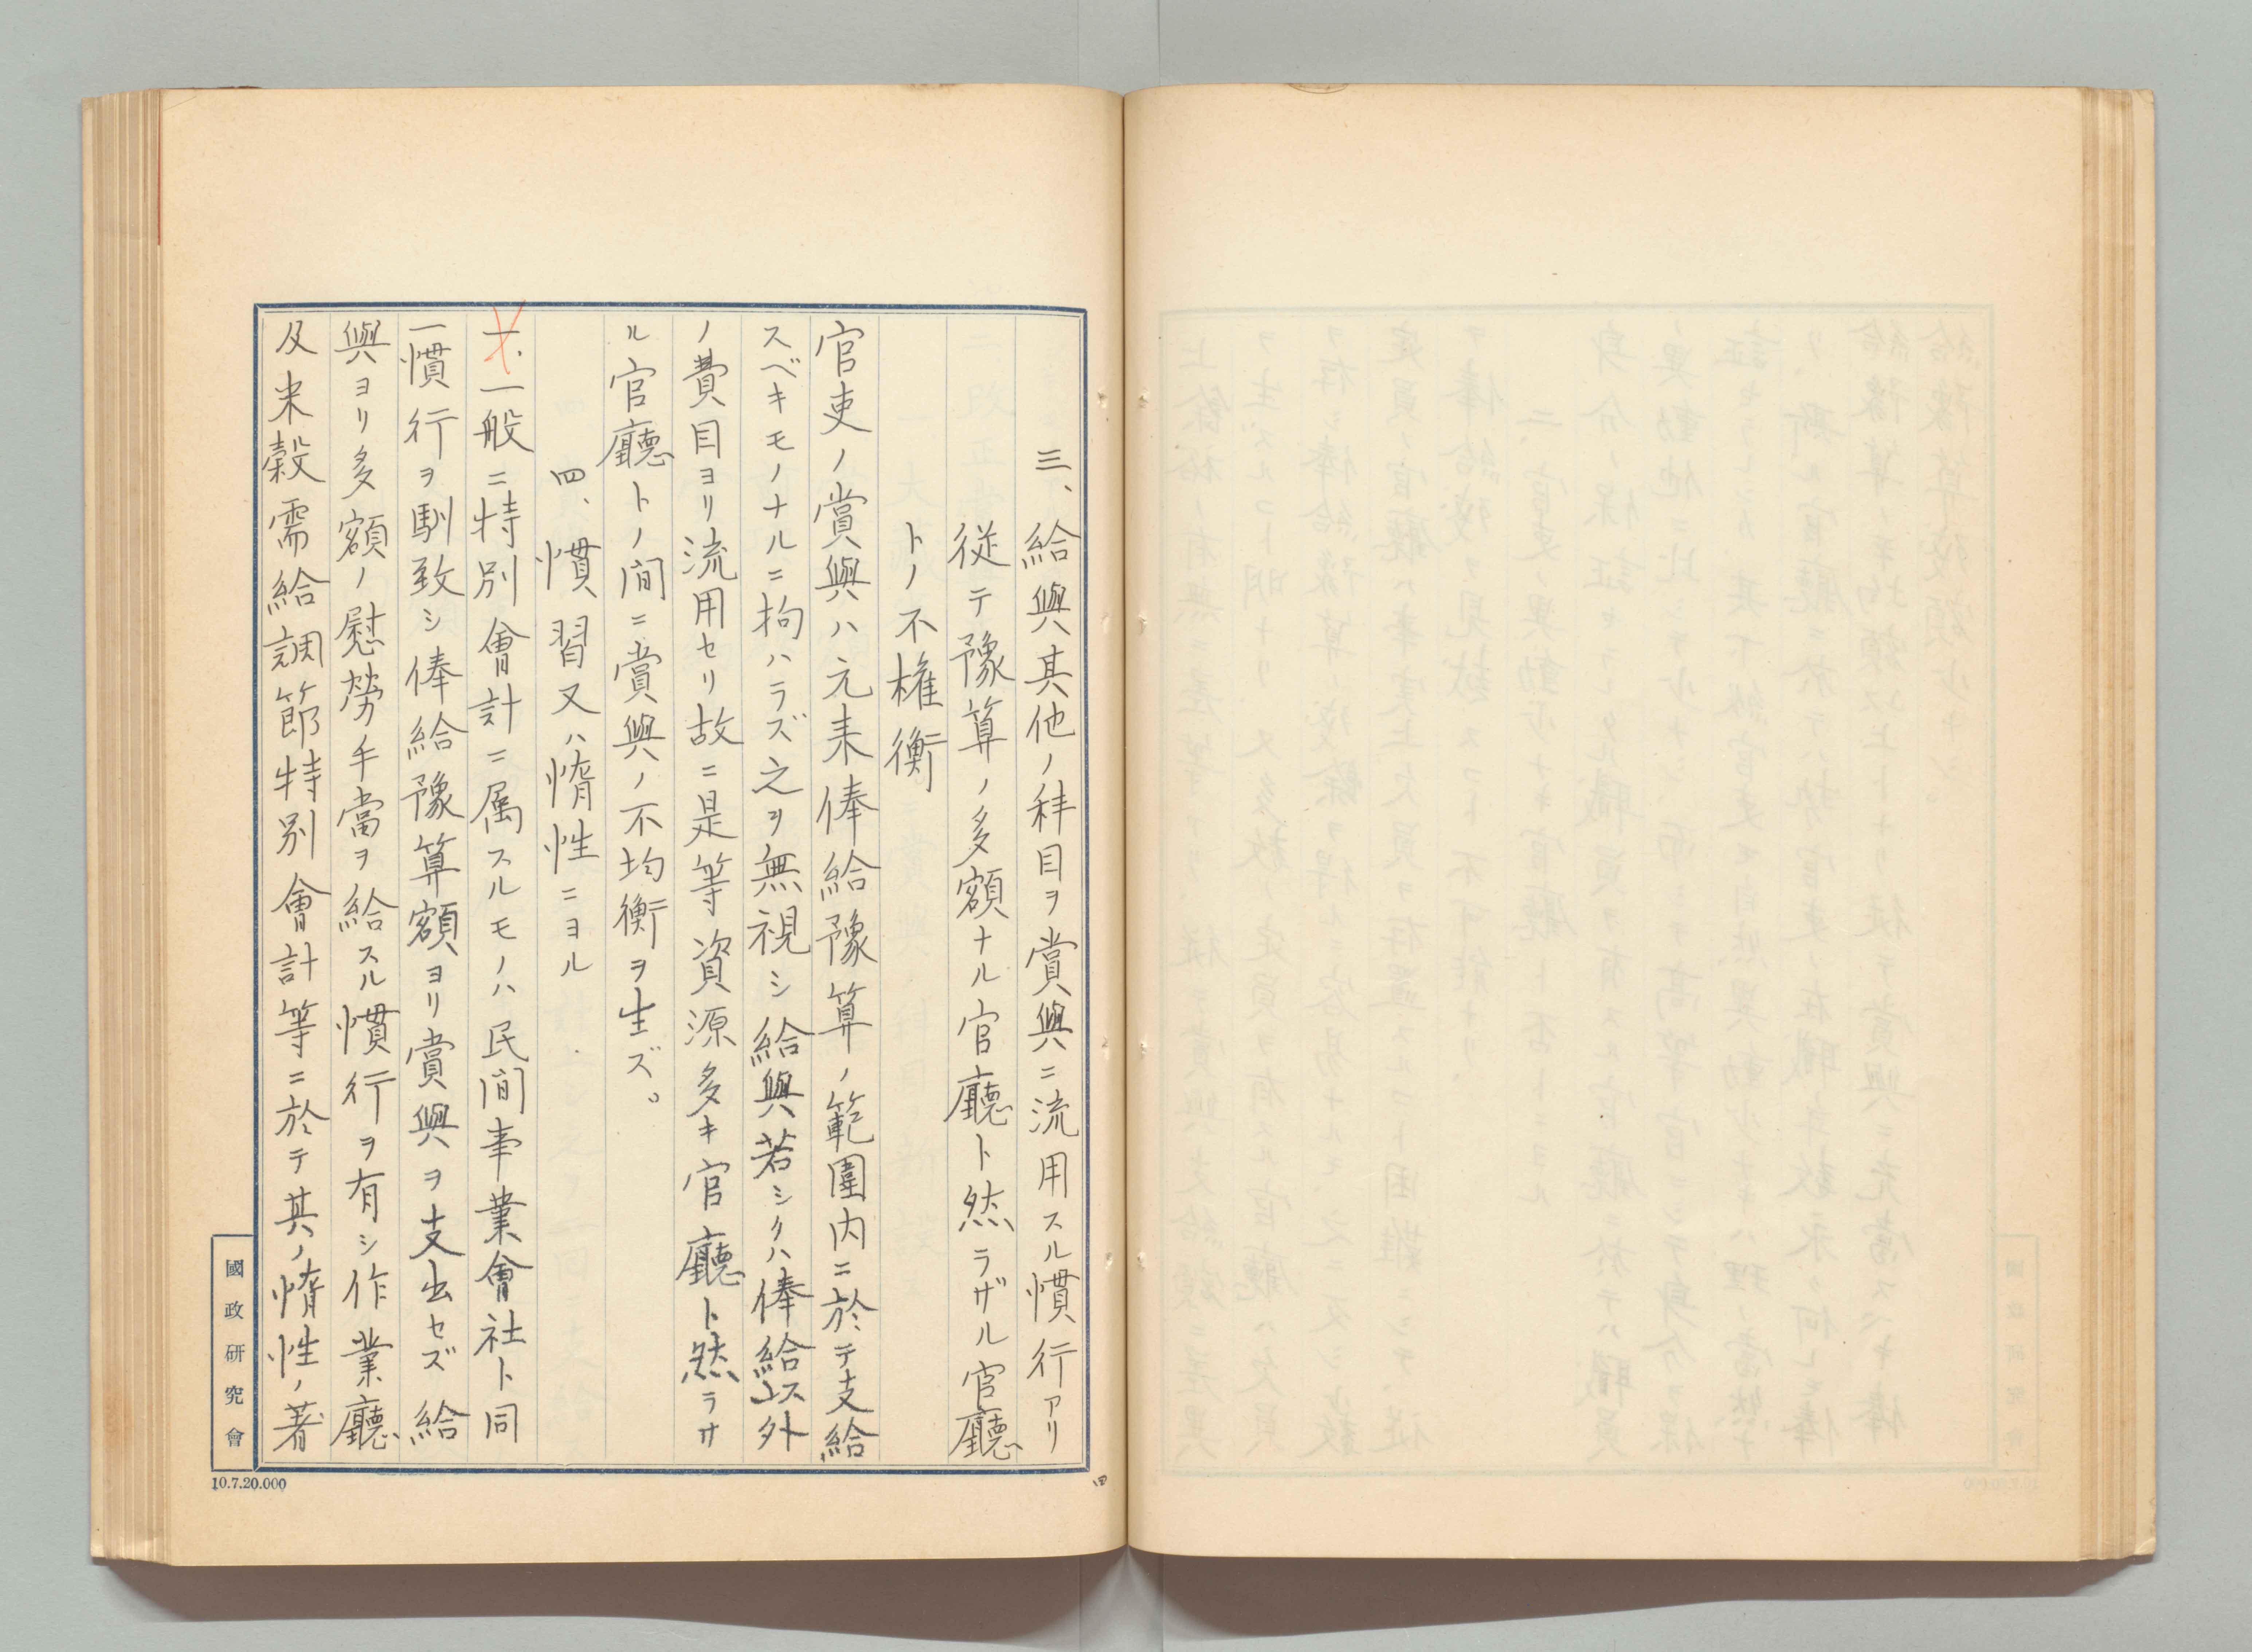 三、給與其他ノ科目ヲ賞與ニ流用スル慣行アリ
従テ豫算ノ多額ナル官廳ト然ラザル官廳
トノ不権衡
官吏ノ賞與ハ元来俸給豫算ノ範圍内ニ於テ支給
スベキモノナルニ拘ハラズ之ヲ無視シ給與若シクハ俸給以外
ノ費目ヨリ流用セリ故ニ是等資源多キ官廳ト然ラサ
ル官廳トノ間ニ賞與ノ不均衡ヲ生ズ。
四、慣習又ハ惰性ニヨル
一、一般ニ特別會計ニ属スルモノハ民間事業會社ト同
一慣行ヲ馴致シ俸給豫算額ヨリ賞與ヲ支出セズ給
與ヨリ多額ノ慰勞手當ヲ給スル慣行ヲ有シ作業廳
及米穀需給調節特別會計等ニ於テ其ノ惰性ノ著
國政研究會
10.7.20.000
四